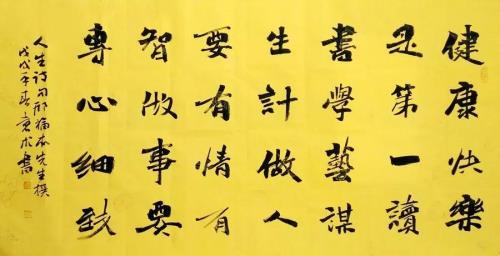 健康快樂
是第一讀
書學藝謀
生計做人
要有情有
智做事要
專心細致
人生诗句先生撰
戊戌年春書